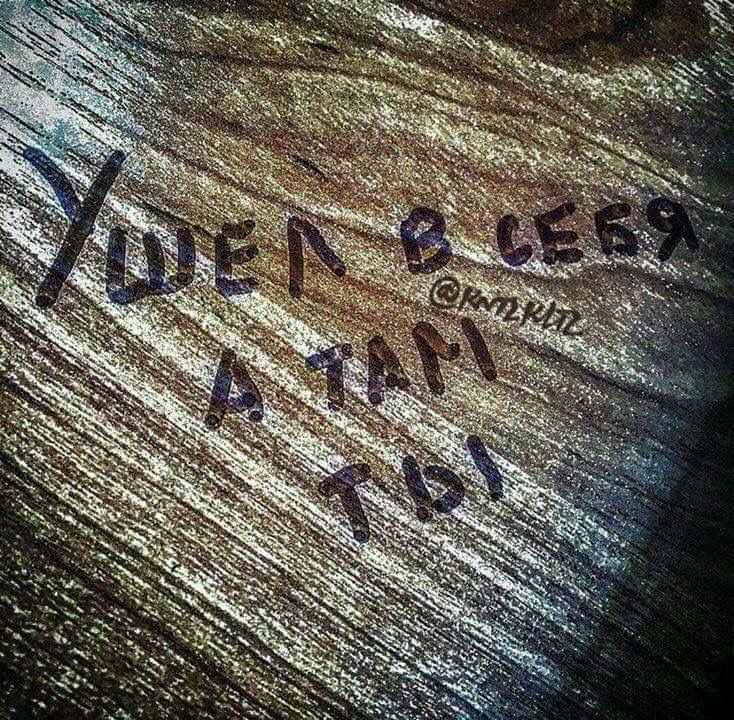 УШЕЛ В СЕБЯ
А ТАМ
ТЫ